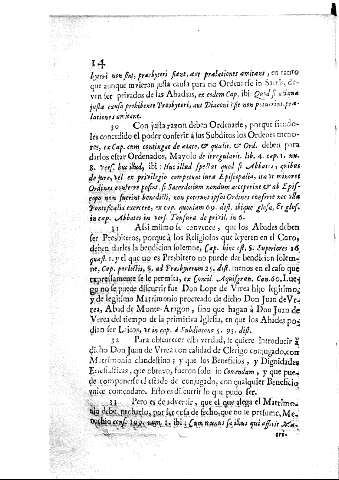 14
byteri non sint, presbyteri fiant, aut prælationes amittant, en tanto
que aunque tuvieran justa causa para no Ordenarse in Sacris, de-
ven ser privados de las Abadias, ex eodem Cap. ibi: Quod si etiam
justa causa prohibente Presbyteri, aut Diaconi esse non potuerint, præ-
lationes amittant.
30 Con justa razon deben Ordenarse, porque siendo-
les concedido el poder conferir à sus Subditos los Ordenes meno-
res, ex Cap. cum contingat de ætate, & qualit. & Ord. deben para
darlos estar Ordenados, Mayolo de irregularit. lib. 4. cap. 1. nu.
8. vers. huc illud, ibi: Huc illud spectat quod si Abbates, quibus
de jure, vel ex privilegio competunt jura Episcopalia, ita ut minores
Ordines conferre possint, si Sacerdotium nondum acceperint & ab Epis-
copo non fuerint benedicti, non poterunt ipsos Ordines conferre nec
Pontificalia exercere, ex cap. quoniam 69. dist. ibique glosa, Et glos.
in cap. Abbates in vers. Tonsura de privil. in 6.
31 Assi mismo se convence, que los Abades deben
ser Presbiteros, porque à los Religiosos que leyeren en el Coro,
deben darles la bendicion solemne, Cap. hinc est, §. Superiores 16
quæst. 1. y el que no es Presbitero no puede dar bendicion solem-
ne, Cap. perlectis, §. ad Presbyterum 25. dist. menos en el caso que
expressamente se le permita, ex Concil. Aquisgran. Can. 60. Lue-
go no se puede discurrir fue Don Lope de Vrrea hijo legitimo,
y de legitimo Matrimonio procreado de dicho Don Juan de Vr-
rea, Abad de Monte-Arragon, sino que hagan à Don Juan de
Vrrea del tiempo de la primitiva Iglesia, en que los Abades po-
dian ser Laicos, Vt in cap. à Subdiacono 5. 93. dist.
32 Para obscurecer esta verdad, se quiere introducir à
dicho Don Juan de Vrrea en calidad de Clerigo conjugado, con
Matrimonio clandestino; y que los Beneficios, y Dignidades
Eclesiasticas, que obtuvo, fueron solo in Comendam, y que pue-
de componerse el estado de conjugado, con qualquier Beneficio
vnico comendato. Esto es discurrir lo que pudo ser.
33 Pero es de advertir, que el que alega el Matrimo-
nio debe probarlo, por ser cosa de fecho, que no se presume, Me-
nochio cons. 199. num. 1. ibi: Cum notum sit illius qui asserit Ma-
tri-